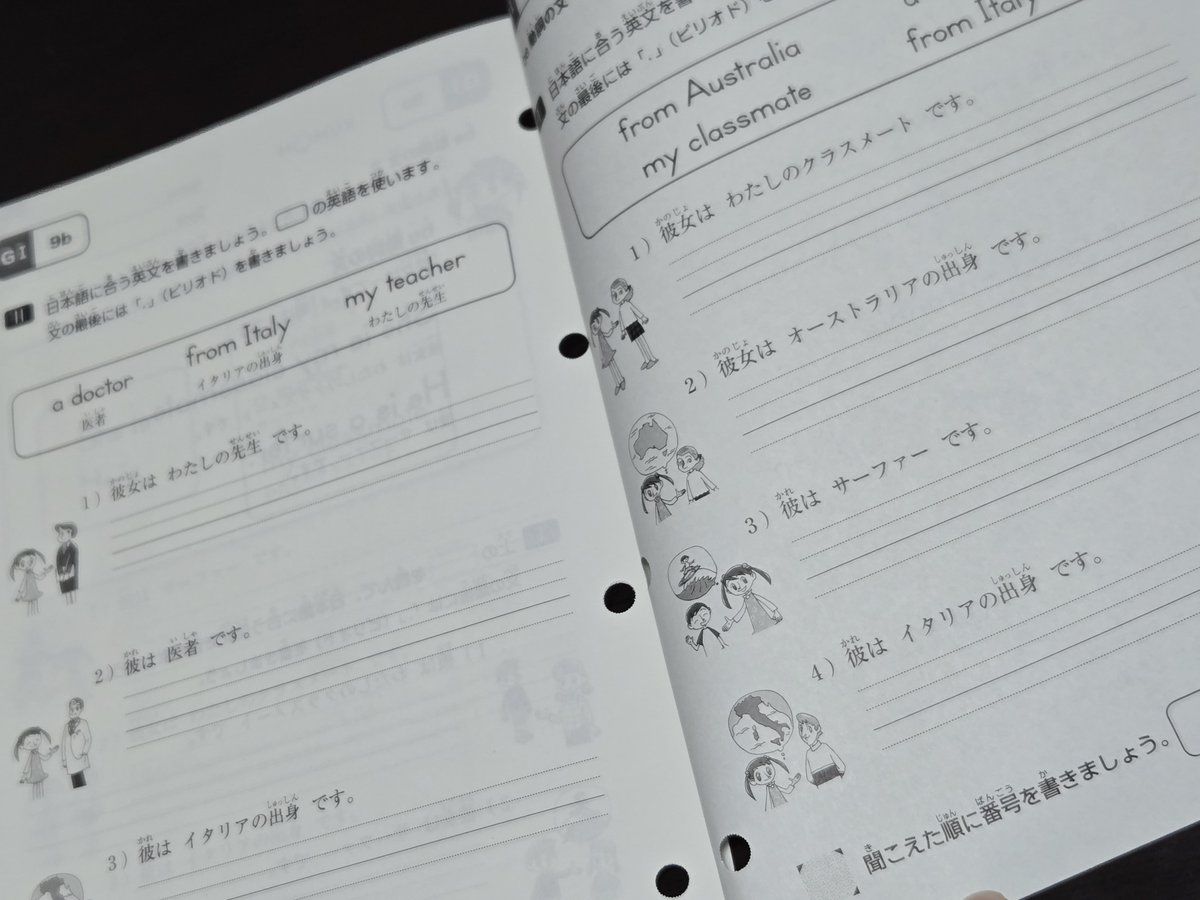 GI 9b
II 日本語に合う英文を書きましょう。 の英語を使います。
文の最後には「.」(ピリオド)を書きましょう。
a doctor from Italy my teacher
医者 イタリアの出身 わたしの先生
1) 彼女は わたしの先生 です。
2) 彼は 医者 です。
3) 彼は イタリアの出身 です。
日本語に合う英文を書
文の最後には「.」(ピリオド)
from Australia
my classmate
from Italy
1) 彼女は わたしのクラスメート です。
2) 彼女は オーストラリアの出身 です。
3) 彼は サーファー です。
4) 彼は イタリアの出身 です。
聞こえた順に番号を書きましょう。